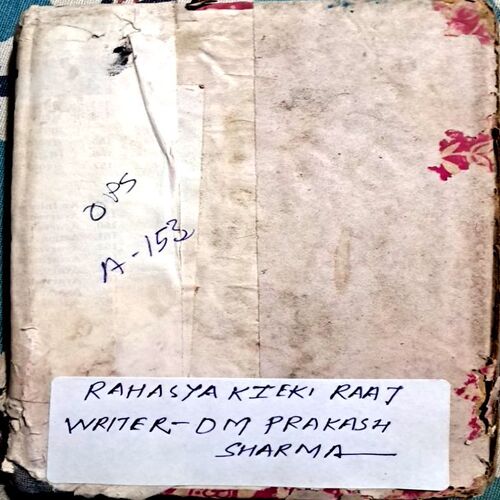 OPS
A-153
RAHASYA KIEKI RAAJ
WRITER- OM PRAKASH
SHARMA